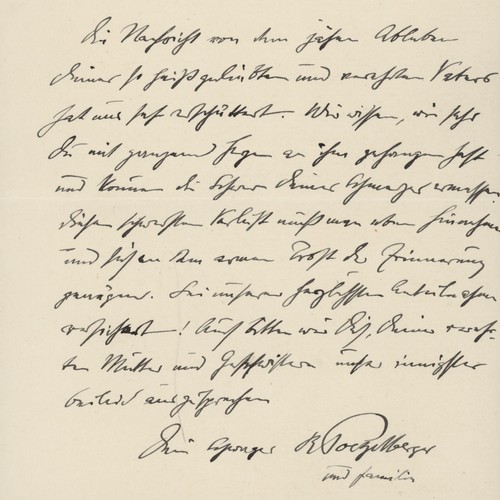 Die Nachricht von dem jähen Ableben
Deines so heißgeliebten und verehrten Vaters
hat uns sehr erschüttert. Wir wissen, wie sehr
Du mit ganzem Herzen an ihm gehangen hast
und können die Schwere Deines Schmerzes ermessen.
diesen schwersten Verlust muß man eben hinnehmen
und sich an dem armen Trost der Erinnerung
genügen. Sei unserer herzlichsten Anteilnahme
versichert! Auch bitten wir Dich, Deiner verehr-
ten Mutter und Geschwistern unser innigstes
Beileid auszusprechen
Dein R. Poetzelberger
und Familie